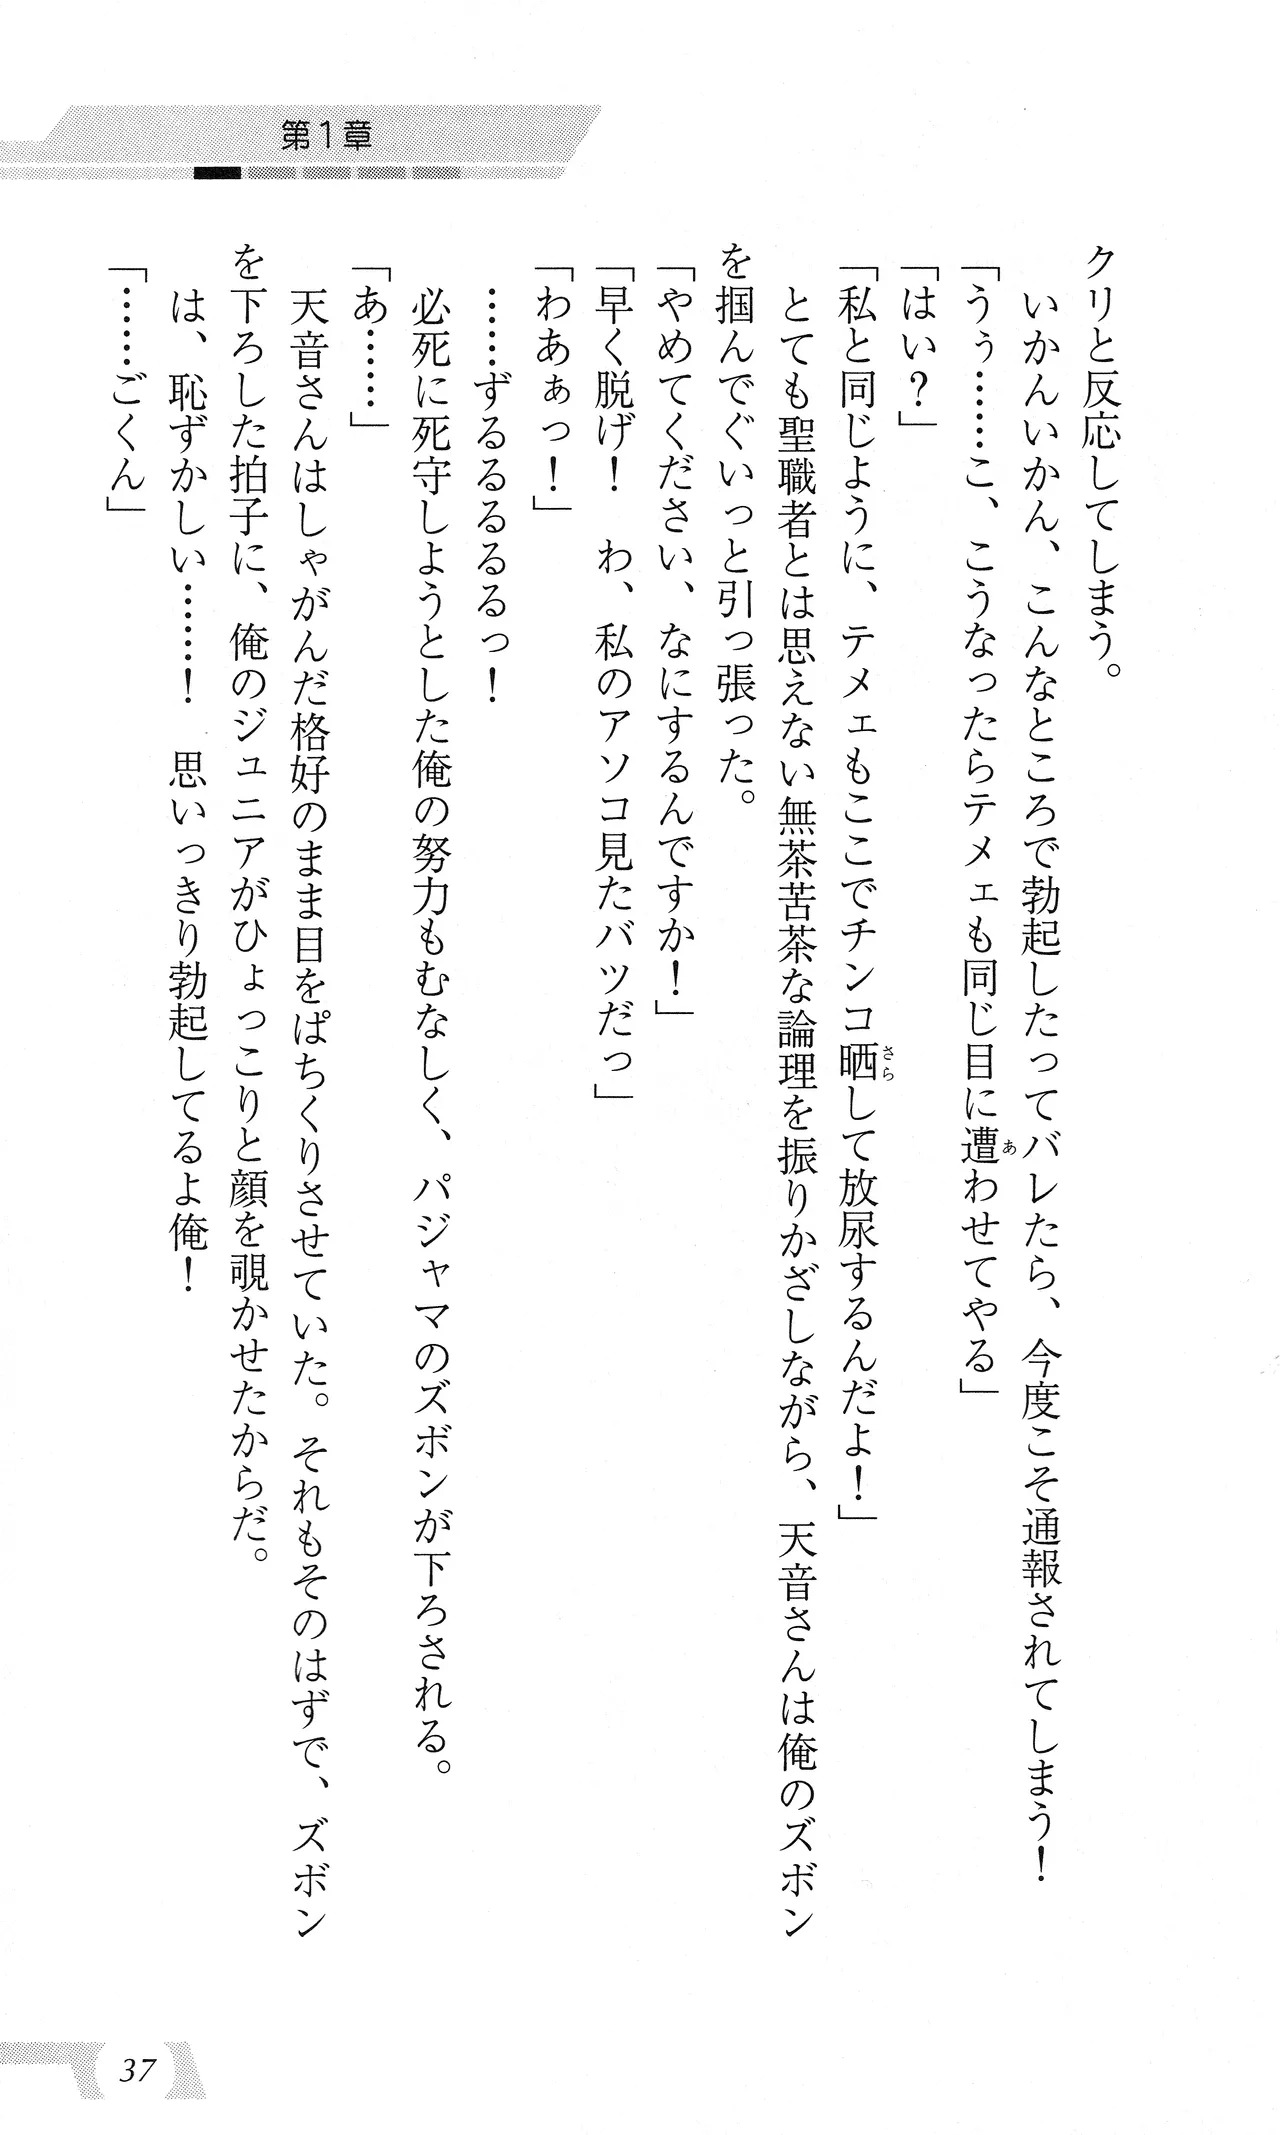 第1章
クリと反応してしまう。
いかんいかん、こんなところで勃起したってバレたら、今度こそ通報されてしまう！
「うぅ……こ、こうなったらテメェも同じ目に遭わせてやる」
「はい？」
「私と同じように、テメェもここでチンコ晒して放尿するんだよ！」
とても聖職者とは思えない無茶苦茶な論理を振りかざしながら、天音さんは俺のズボン
を掴んでぐいっと引っ張った。
「やめてください、なにするんですか！」
「早く脱げ！　わ、私のアソコ見たバツだっ」
「わあぁっ！」
……ずるるるるっ！
必死に死守しようとした俺の努力もむなしく、パジャマのズボンが下ろされる。
「あ……」
天音さんはしゃがんだ格好のまま目をぱちくりさせていた。それもそのはずで、ズボン
を下ろした拍子に、俺のジュニアがひょっこりと顔を覗かせたからだ。
は、恥ずかしい……！　思いっきり勃起してるよ俺！
「……ごくん」
37